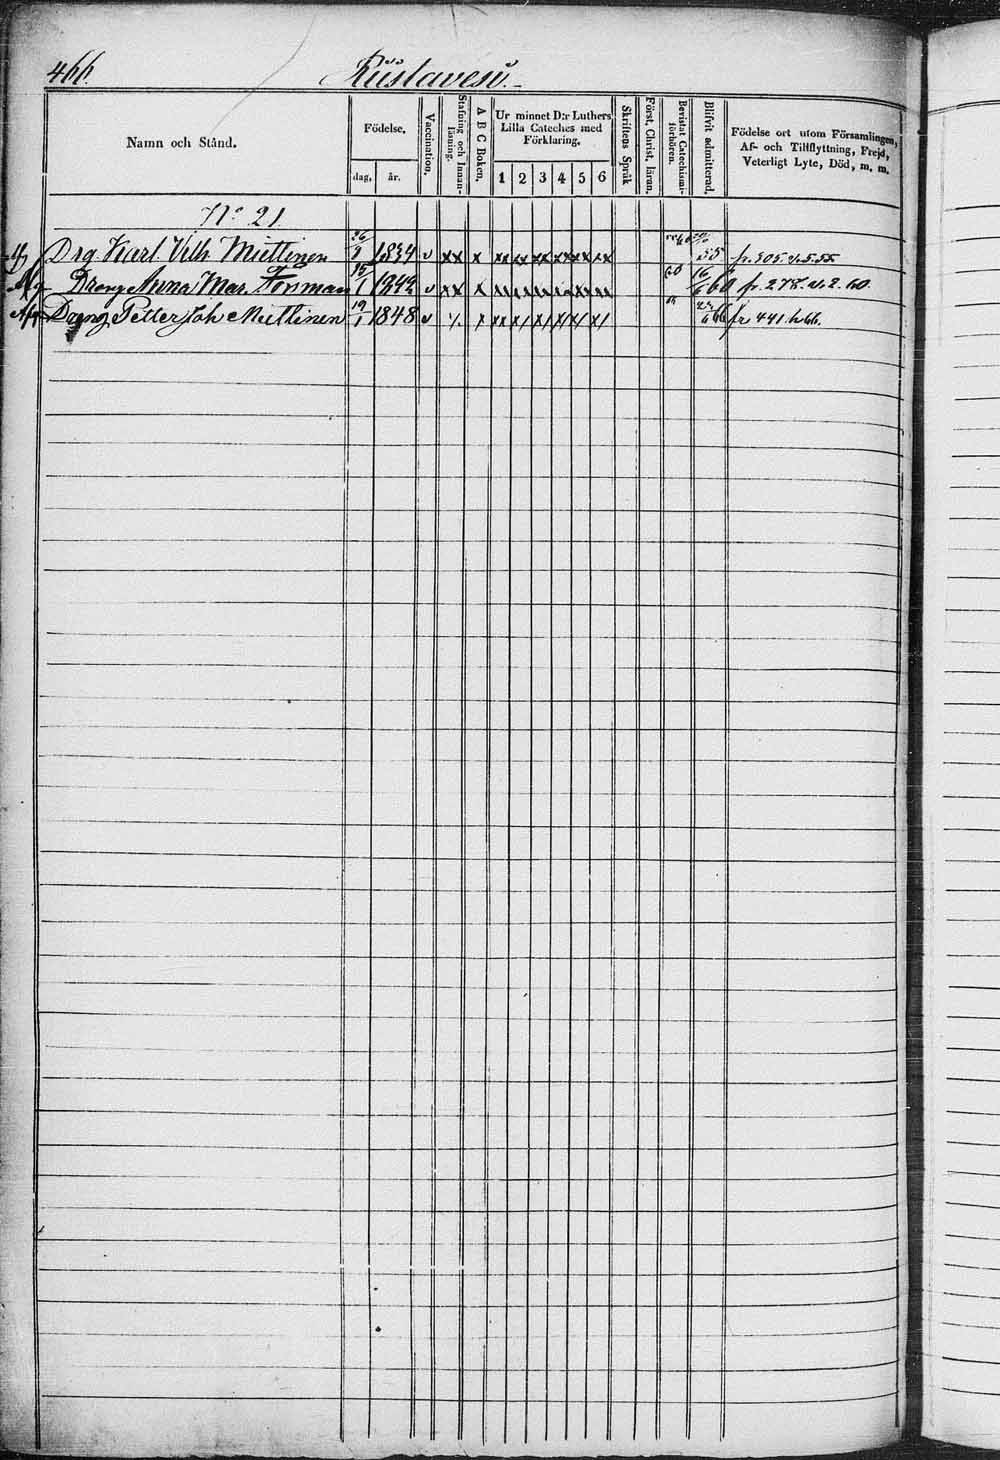 466.
Namn och Stånd.
Födelse.
dag.
år.
Vaccination.
Stafning och Innanläsning.
A B C Boken.
Ur minnet D:r Luthers Lilla Cateches med Förklaring.
1 2 3 4 5 6
Skriftens Språk
Först. Christ. läran.
Bevistat Catechismiförhören.
Blifvit admitterad.
Födelse ort utom Församlingen, Af- och Tillflyttning, Frejd, Veterligt Lyte, Död, m. m.
N:o 21
Drg. Karl Vilh. Miettinen 26/8 1834 v xx x xx xx xx xx xx xx 55 fr. 305. v. 5. 55
Dreng Anna Mar. Forsman 15/1 1843 v xx x 60 16/6 60 fr. 278. v. 2. 60
Afg Dreng Petter Joh Miettinen 19/1 1848 v 23/6 66 fr 441. h 66.